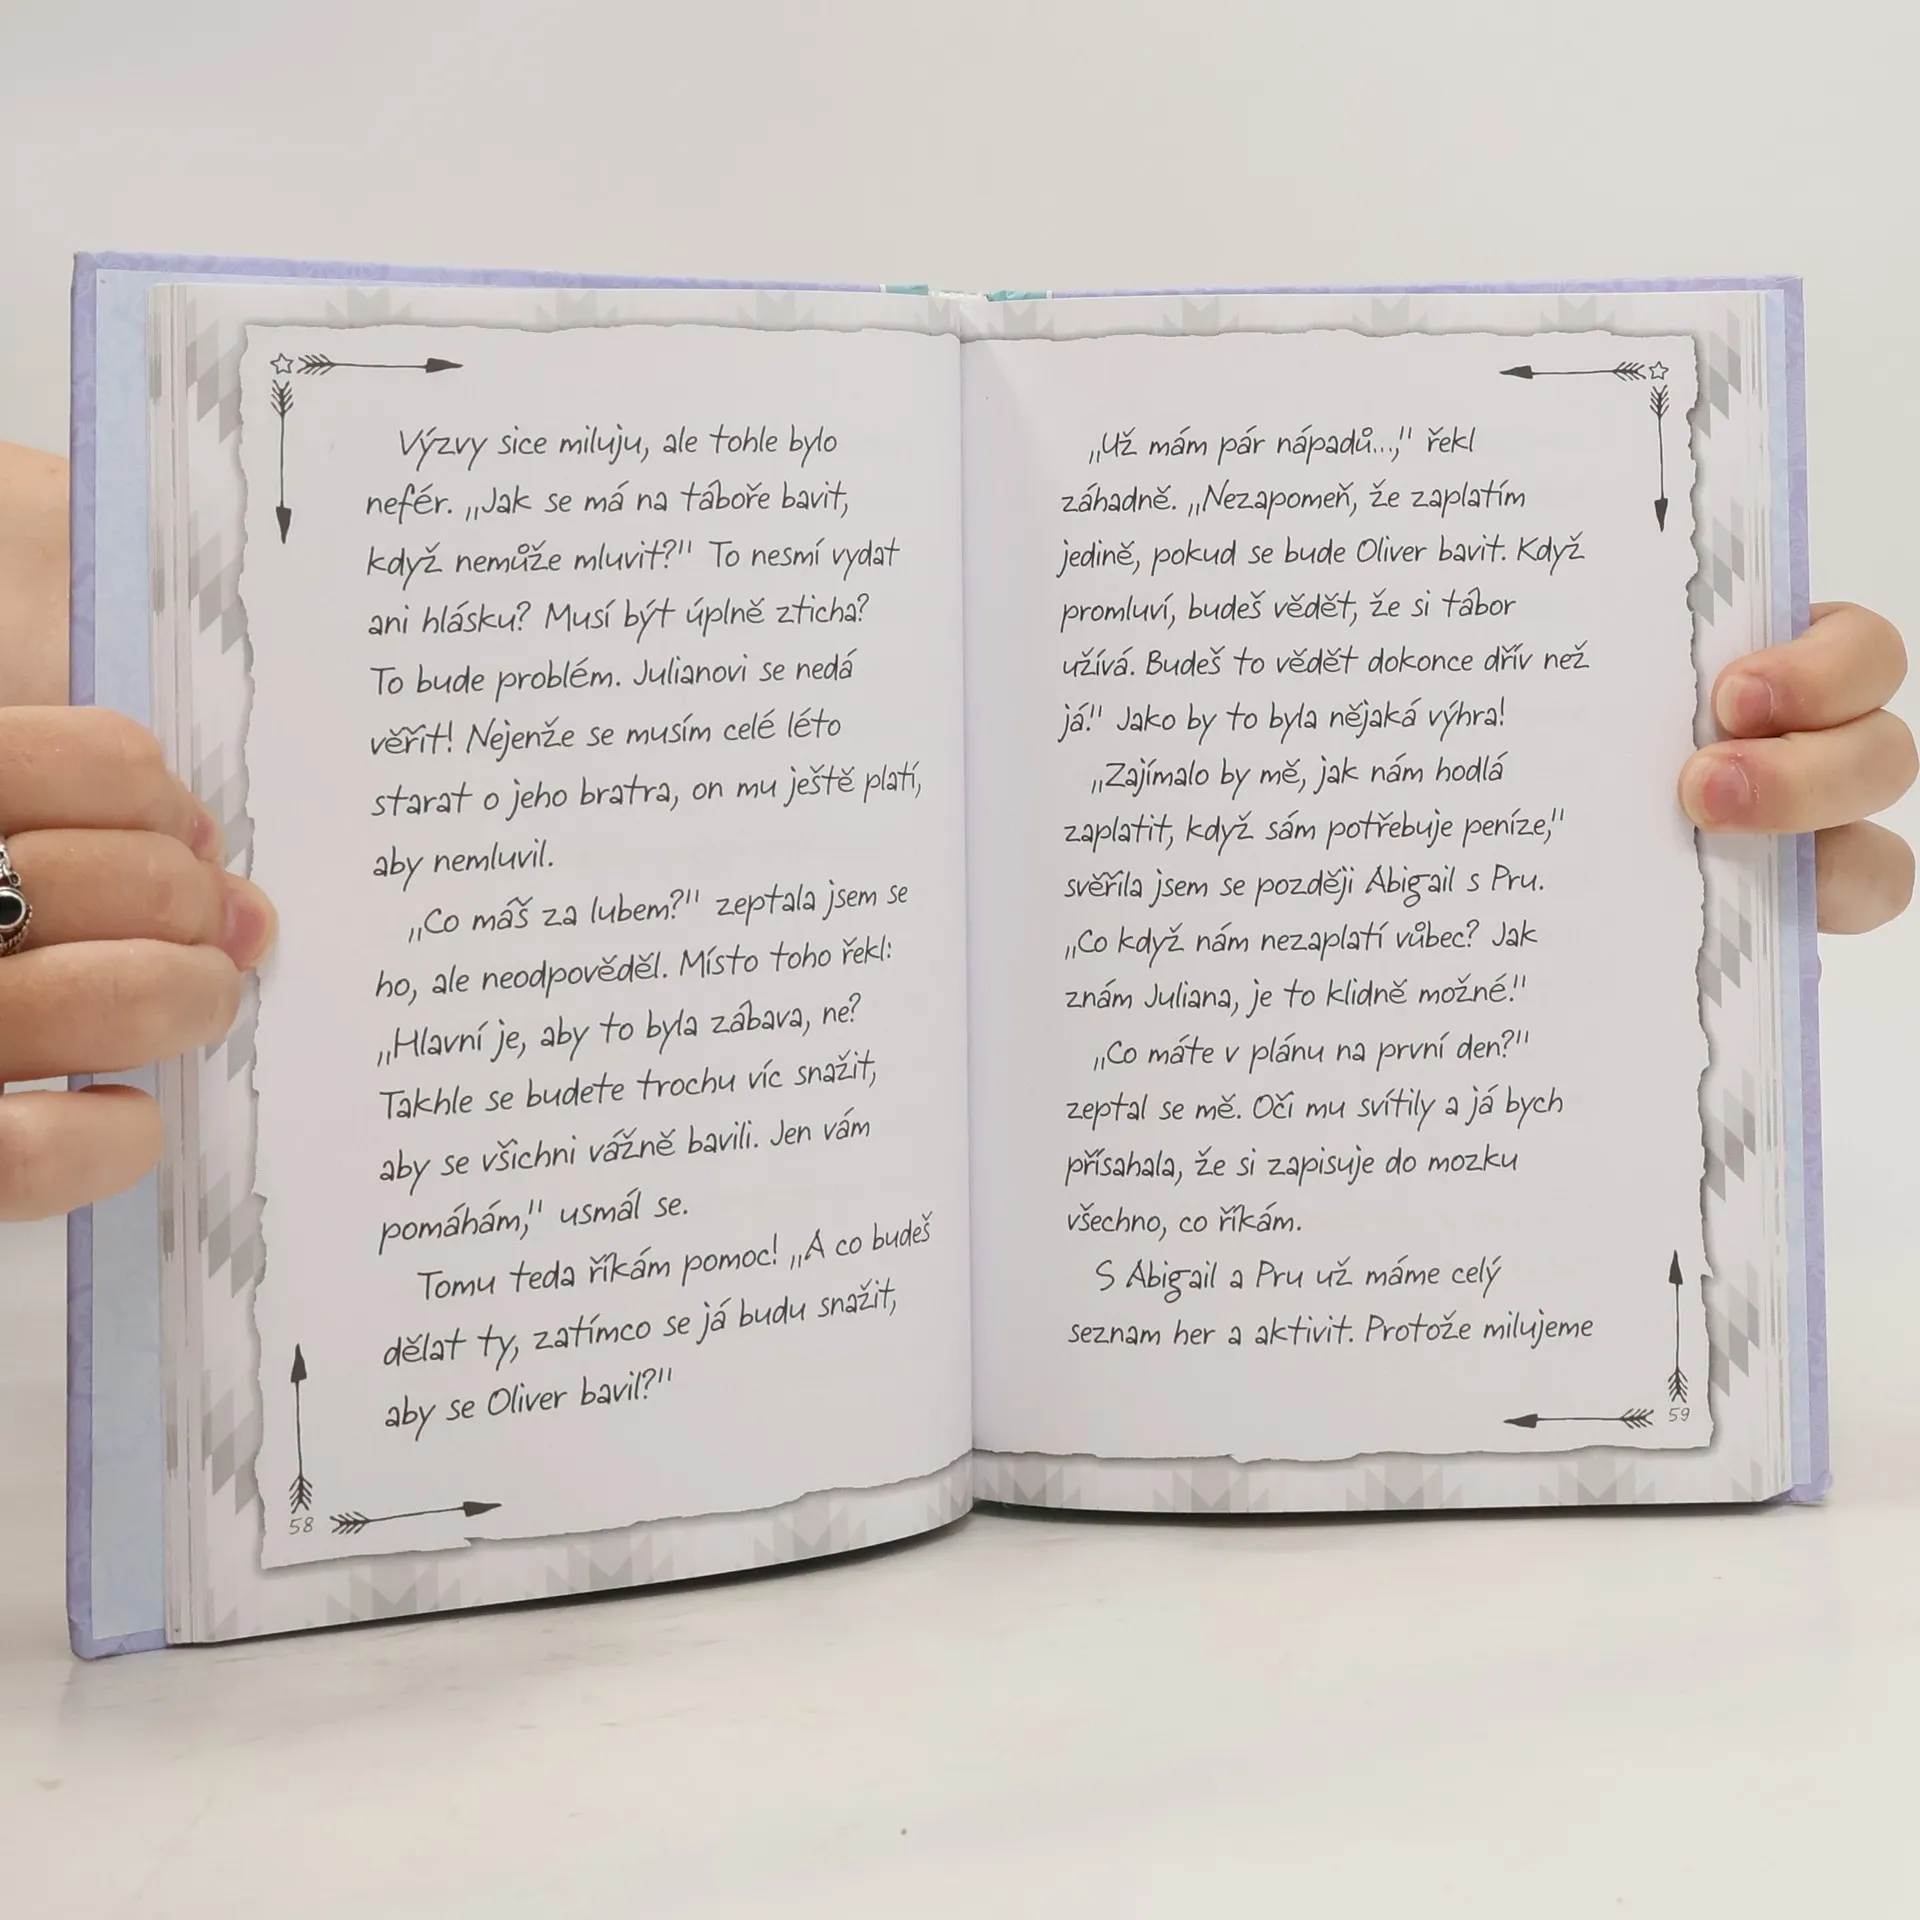 Výzvy sice miluju, ale tohle bylo
nefér. „Jak se má na táboře bavit,
když nemůže mluvit?" To nesmí vydat
ani hlásku? Musí být úplně zticha?
To bude problém. Julianovi se nedá
věřit! Nejenže se musím celé léto
starat o jeho bratra, on mu ještě platí,
aby nemluvil.
„Co máš za lubem?" zeptala jsem se
ho, ale neodpověděl. Místo toho řekl:
„Hlavní je, aby to byla zábava, ne?
Takhle se budete trochu víc snažit,
aby se všichni vážně bavili. Jen vám
pomáhám," usmál se.
Tomu teda říkám pomoc! „A co budeš
dělat ty, zatímco se já budu snažit,
aby se Oliver bavil?"
58
„Už mám pár nápadů...," řekl
záhadně. „Nezapomeň, že zaplatím
jedině, pokud se bude Oliver bavit. Když
promluví, budeš vědět, že si tábor
užívá. Budeš to vědět dokonce dřív než
já!" Jako by to byla nějaká výhra!
„Zajímalo by mě, jak nám hodlá
zaplatit, když sám potřebuje peníze,"
svěřila jsem se později Abigail s Pru.
„Co když nám nezaplatí vůbec? Jak
znám Juliana, je to klidně možné."
„Co máte v plánu na první den?"
zeptal se mě. Oči mu svítily a já bych
přísahala, že si zapisuje do mozku
všechno, co říkám.
S Abigail a Pru už máme celý
seznam her a aktivit. Protože milujeme
59